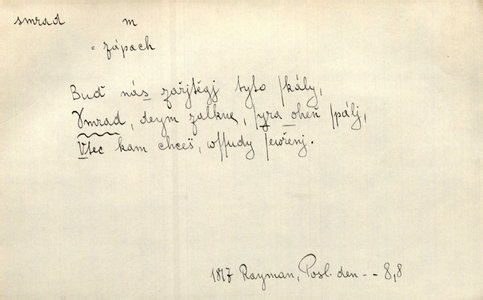 smrad m
= zápach
Buď nás zařjtěgj tyto ſkály,
Smrad, deym zalkne, ſyra oheň ſpálj,
Utec kam chceš, wſſudy ſewřenj.
1817 Rayman, Posl. den -- 8,8